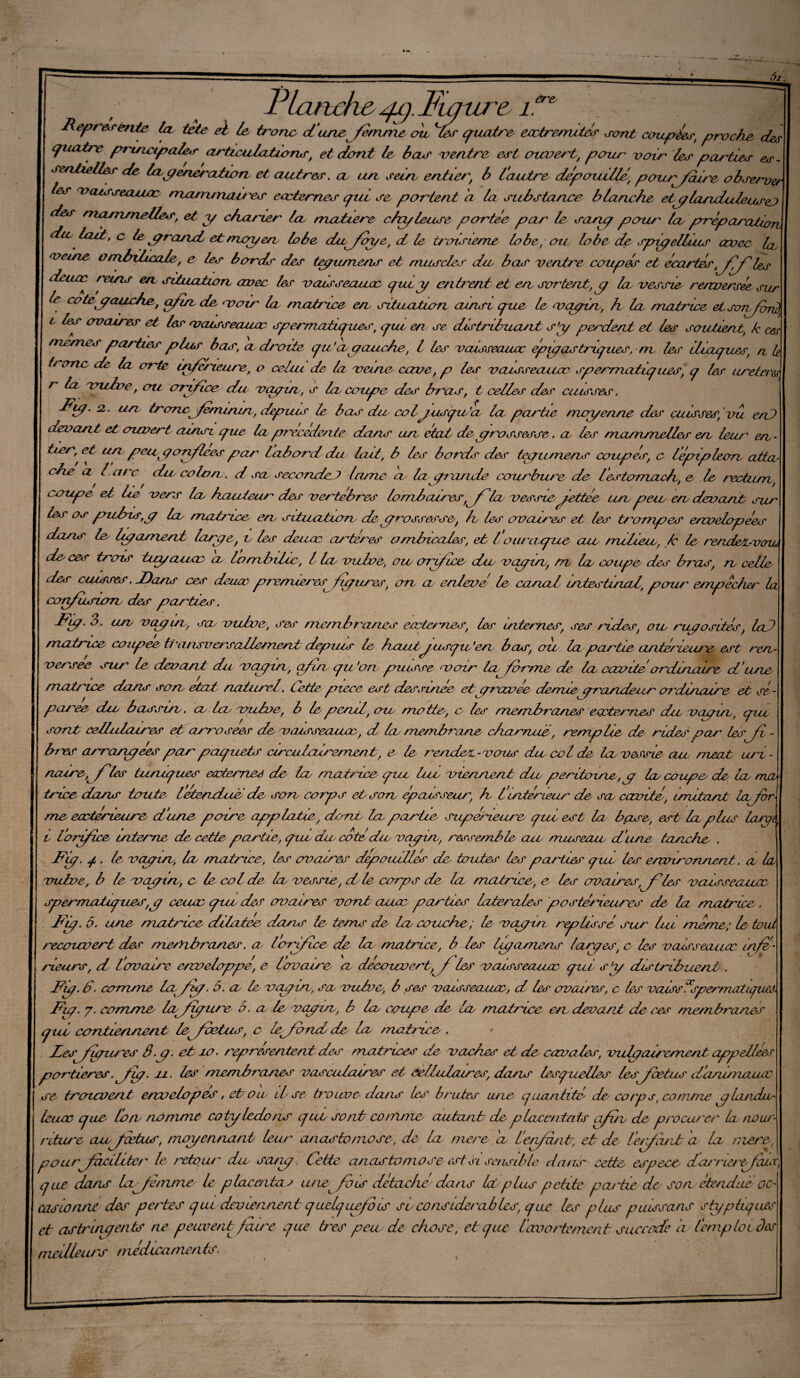 51
Planche 49. Figure 1.ere
Représente la tête et le tronc d'une femme ou les quatre extremités sont coupées, proche des
quatre principales articulations, et dont le bas ventre est ouvert, pour voir les parties es-
sentielles de la génération et autres. a un sein entier, b l'autre dépouillé, pour faire observer
les vaisseaux mammaires externes qui se portent a la substance blanche et glanduleuse
des mammelles, et y charier la matiere chyleuse portée par le sang pour la préparation
du lait, c le grand et moyen lobe du foye, d le troisieme lobe, ou lobe de spigellius avec la
veine ombilicale, e les bords des tegumens et muscles du bas ventre coupés et écartés, f f les
deux reins en situation avec les vaisseaux qui y entrent et en sortent, g la vessie renversée sur
le côté gauche, afin de voir la matrice en situation ainsi que le vagin, h la matrice et son fond
i les ovaires et les vaisseaux spermatiques, qui en se distribuant s'y perdent et les soutient, k ces
memes parties plus bas, a droite qu'a gauche, l les vaisseaux épigastriques, m les iliaques, n le
tronc de la orte inférieure, o celui de la veine cave, p les vaisseaux spermatiques, q les ureteres
r la vulve, ou orifice du vagin, s la coupe des bras, t celles des cuisses.
Fig. 2. un tronc féminin, depuis le bas du col jusqu'a la partie moyenne des cuisses, vû en
devant et ouvert ainsi que la précédente dans un état de grossesse. a les mammelles en leur en-
tier, et un peu gonflées par l'abord du lait, b les bords des tégumens coupés, c l'épipleon atta-
ché a l'arc du colon. d sa seconde lame a la grande courbure de l'estomach, e le rectum,
coupé et lié vers la hauteur des vertebres lombaires, f la vessie jettée un peu en devant sur
les os pubis, g la matrice en situation de grossesse, h les ovaires et les trompes envelopées
dans le ligament large, i les deux artéres ombicales, et l'ouraque au milieu, k le rendez-vous
de ces trois tuyaux a l'ombilic, l la vulve, ou orifice du vagin, m la coupe des bras, n celle
des cuisses. Dans ces deux premieres figures, on a enlevé le canal intestinal, pour empêcher la
confusion des parties.
Fig. 3. un vagin, sa vulve, ses membranes externes, les internes, ses rides, ou rugosités, la
matrice coupée transversallement depuis le haut jusqu'en bas, ou la partie antérieure est ren-
versée sur le devant du vagin, afin qu'on puisse voir la forme de la cavité ordinaire d'une
matrice dans son état naturel. Cette piece est dessinée et gravée demie grandeur ordinaire et sé-
parée du bassin. a la vulve, b le penil, ou motte, c les membranes externes du vagin, qui
sont cellulaires et arrosées de vaisseaux, d la membrane charnuë, remplie de rides par les fi-
bres arrangées par paquets circulairement, e le rendez-vous du col de la vessie au meat uri-
naire, f les tuniques externes de la matrice qui lui viennent du peritoine, g la coupe de la ma-
trice dans toute l'étenduë de son corps et son épaisseur, h l'intérieur de sa cavité, imitant la for-
me extérieure d'une poire applatie, dont la partie supérieure qui est la base, est la plus large
i l'orifice interne de cette partie, qui du côté du vagin, ressemble au museau d'une tanche.
Fig. 4. le vagin, la matrice, les ovaires dépouillés de toutes les parties qui les environnent. a la
vulve, b le vagin, c le col de la vessie, d le corps de la matrice, e les ovaires, f les vaisseaux
spermatiques, g ceux qui des ovaires vont aux parties laterales postérieures de la matrice.
Fig. 5. une matrice dilatée dans le tems de la couche; le vagin replissé sur lui même; le tout
recouvert des membranes. a l'orifice de la matrice, b les ligamens larges, c les vaisseaux infé-
rieurs, d l'ovaire enveloppé, e l'ovaire a découvert, f les vaisseaux qui s'y distribuent.
Fig. 6. comme la fig. 5. a le vagin, sa vulve, b ses vaisseaux, d les ovaires, c les vaiss.x spermatiques.
Fig. 7. comme la figure 5. a le vagin, b la coupe de la matrice en devant de ces membranes
qui contiennent le fœtus, c le fond de la matrice.
Les figures 8. 9. et 10. représentent des matrices de vaches et de cavales, vulgairement appellées
portieres. fig. 11. les membranes vasculaires et cellulaires, dans lesquelles les fœtus d'animaux
se trouvent envelopés, et ou il se trouve dans les brutes une quantité de corps, comme glandu-
leux que l'on nomme cotyledons qui sont comme autant de placentats afin de procurer la nour-
riture au fœtus, moyennant leur anastomose, de la mere a l'enfant, et de l'enfant a la mere,
pour faciliter le retour du sang. Cette anastomose est si sensible dans cette espece d'arriere faix,
que dans la femme le placenta une fois détaché dans la plus petite partie de son étenduë oc-
casionne des pertes qui deviennent quelquefois si considerables, que les plus puissans styptiques
et astringents ne peuvent faire que tres peu de chose, et que l'avortement succede a l'emploi des
meilleurs médicaments.